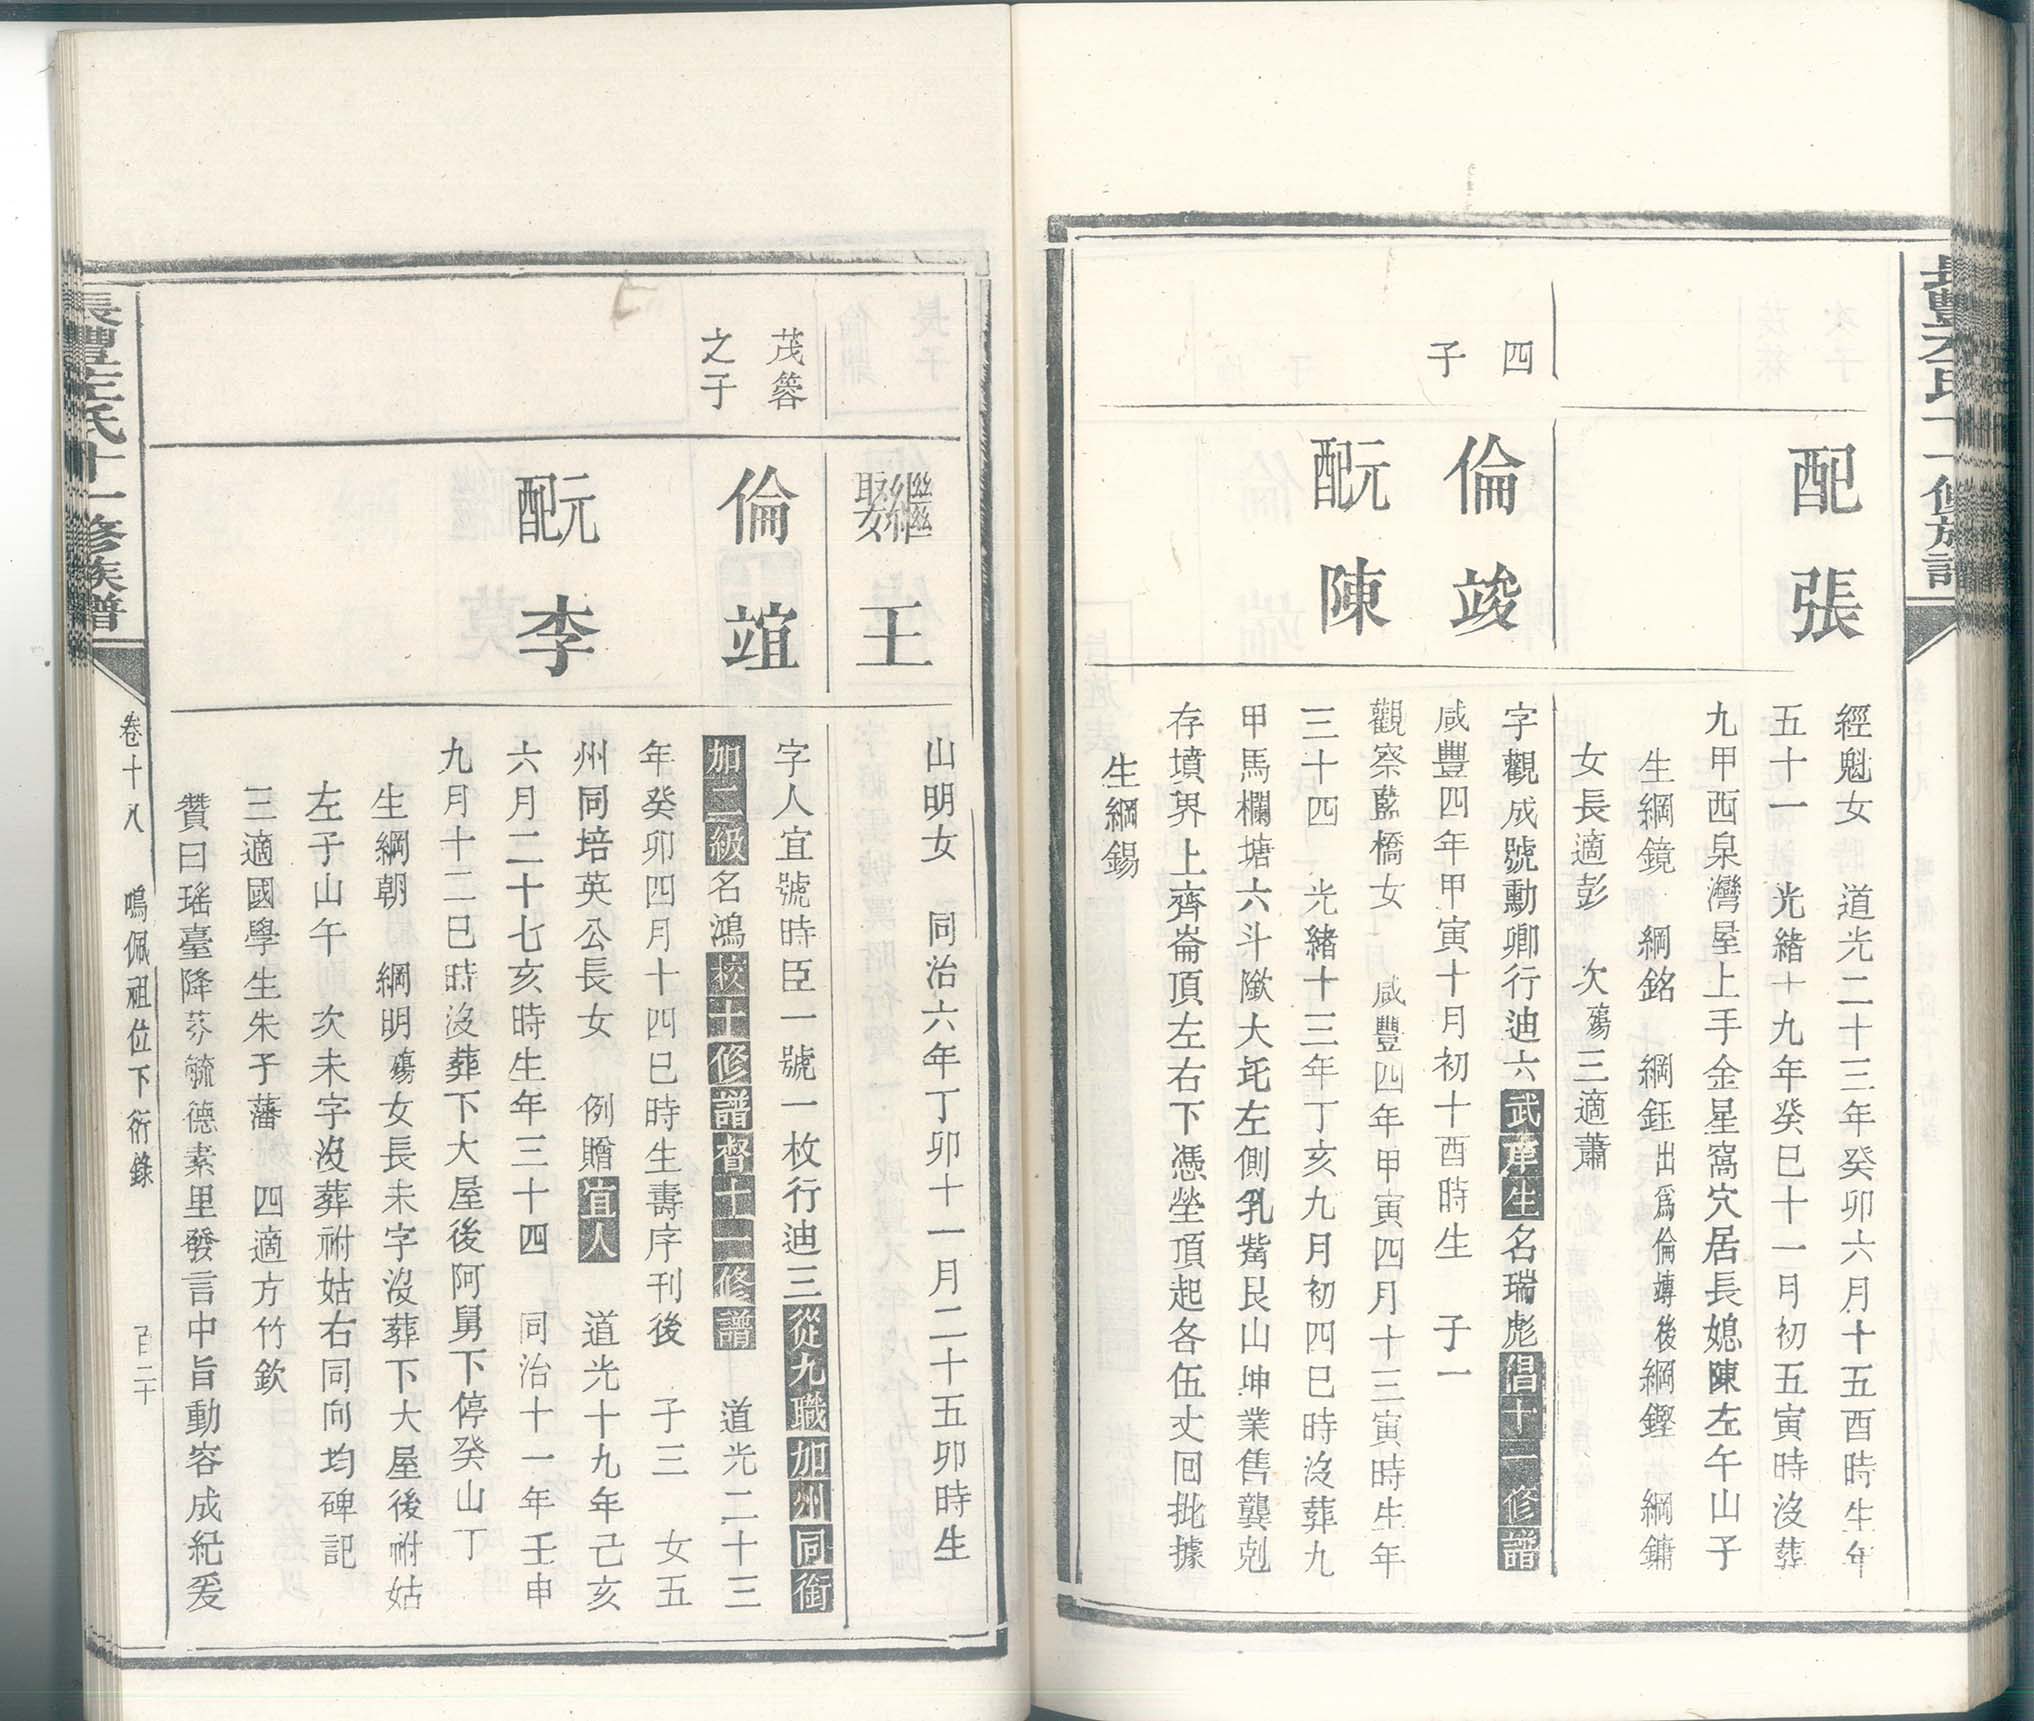 配張
經魁女　道光二十三年癸卯六月十五酉時生年
五十一　光緒十九年癸巳十一月初五寅時沒葬
九甲西泉灣屋上手金星窩穴居長媳陳左午山子
生綱鏡　綱銘　綱鈺出爲倫竱後綱鏗　綱鏞
女長適彭　次殤三適蕭
四
子
倫竣
字觀成號勳卿行迪六武庠生名瑞彪倡十一修譜
咸豐四年甲寅十月初十酉時生　子一
元配陳
觀察藍橋女　咸豐四年甲寅四月十三寅時生年
三十四　光緒十三年丁亥九月初四巳時沒葬九
甲馬欄塘六斗墩大坵左側乳觜艮山坤業售龔剋
存墳界上齊崙頂左右下憑塋頂起各伍丈囘批據
生綱錫
繼娶王
山明女　同治六年丁卯十一月二十五卯時生
茂簵
之子
倫竩
字人宜號時臣一號一枚行迪三從九職加州同銜
加二級名鴻校十修譜督十一修譜　道光二十三
年癸卯四月十四巳時生壽序刊後　子三　女五
元配李
州同培英公長女　例贈宜人　道光十九年己亥
六月二十七亥時生年三十四　同治十一年壬申
九月十二巳時沒葬下大屋後阿舅下停癸山丁
生綱朝　綱明殤女長未字沒葬下大屋後祔姑
左子山午　次未字沒葬祔姑右同向均碑記
三適國學生朱子藩　四適方竹欽
贊曰瑤臺降芬毓德素里發言中旨動容成紀爰
卷十八　鳴佩祖位下衍錄　百二十